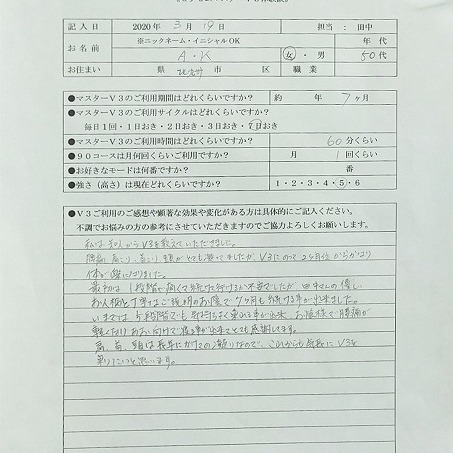 記入日 2020年 3月 19日 担当：田中
お名前 ※ニックネーム・イニシャルOK A・K 女・男 年代 50代
お住まい 県 市 区 職業
●マスターV3のご利用期間はどれくらいですか？ 約 年 7ヶ月
●マスターV3のご利用はどれくらいですか？
毎日1回・1日おき・2日おき・3日おき・7日おき
●マスターV3のご利用時間はどれくらいですか？ 60分くらい
●90コースは月何回くらいご利用ですか？ 月 1回くらい
●お好きなモードは何番ですか？ 番
●強さ（高さ）は現在どれくらいですか？ 1・2・3・4・5・6
●V3ご利用のご感想や顕著な効果や変化がある方は具体的にご記入ください。
不調でお悩みの方の参考にさせていただきますのでご協力よろしくお願いします。
私は知人からV3を教えていただきました。
腰痛、肩こり、首こり、頭がとても凝ってましたが、V3にのって2ヶ月位からかなり
体が楽になりました。
最初は1段階でも続けて行けるか不安でしたが、田中さんの優しい
お人柄と丁寧なご説明のお陰で7ヶ月も続ける事が出来ました。
いまでは5段階でも気持ちよく乗れる事が出来、お陰様で腰痛が
軽くなりあおい向けで寝る事が出来てとても感謝してます。
肩、首、頭は長年にかけての凝りなので、これからも気長にV3を
乗りたいと思います。